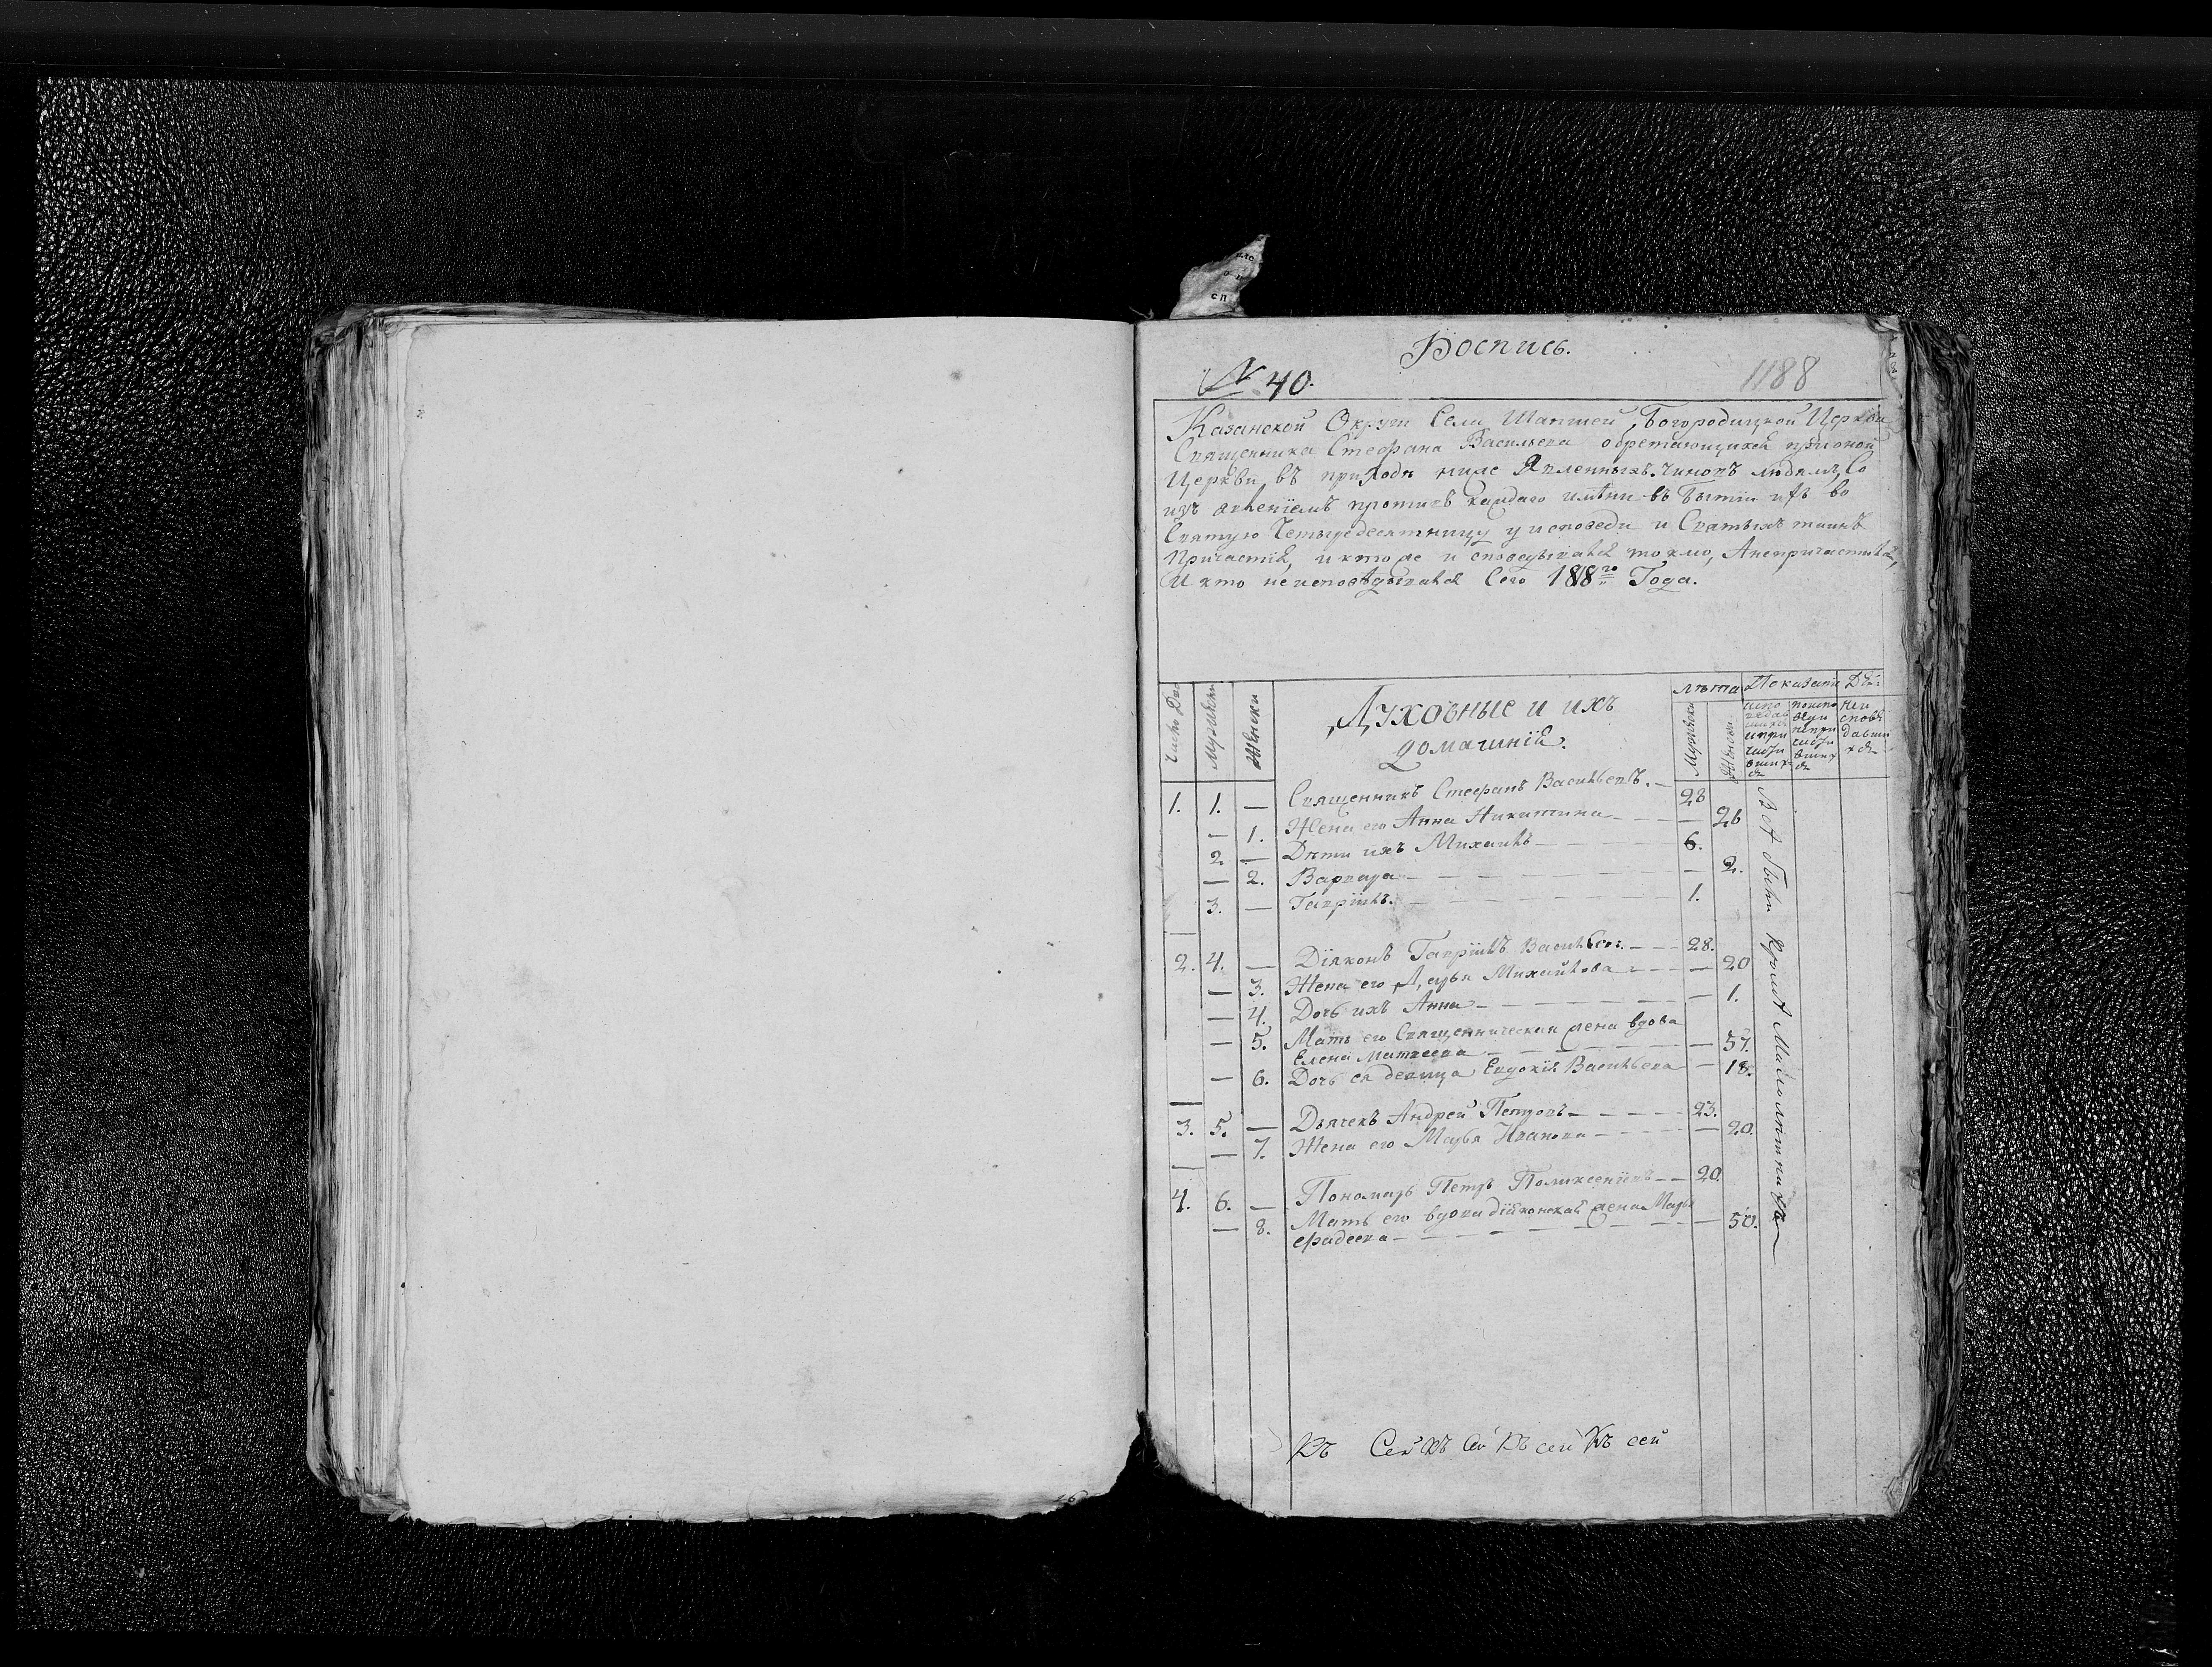 Роспись.
№ 40.
1188
Казанской Округи Села Шапшей, Богородицкой Церкви
Священника Стефана Васильева обретающихся прионой
Церкви, въ приходѣ ниже Явленныхъ чиновъ людямъ, Со
изъявленіемъ противъ каждаго имѣни въ бытіи ихъ во
Святую Четыредесятницу у исповеди и Святыхъ таинъ
Причастія, и ктоже исповедывался токмо, Анепричастился,
И кто неисповѣдывался Сего 1818го Года.
Число Дво
Мужески
Женски
Духовные и ихъ
домашнія.
лѣта
Мужески
Женски
Показаніи Дѣ:
испо
ведав
шихся
ипри
части
вших
ся
поиспо
веди
непри
части
вших
ся
неи
сповѣ
давши
хся
1. 1. — Священникъ Стефанъ Васильевъ. — 28
— 1. Жена его Анна Никитина — — 26
2. — Дѣти ихъ Михаилъ — 6.
— 2. Варвара — — 2.
3. — Гаврiилъ. — 1.
2. 4. — Дiяконъ Гаврiилъ Васильев: — 28.
— 3. Жена его Дарья Михайлова — — 20
— 4. Дочь ихъ Анна — — 1.
— 5. Мать его Священническая жена вдова
Елена Матвеева — — 57.
— 6. Дочь ея девица Евдокія Васильева — 18.
3. 5. — Дьячекъ Андрей Петровъ — 23.
— 7. Жена его Марья Иванова — — 20.
4. 6. — Пономарь Петръ Поликсенiинъ — 20.
— 8. Мать его вдова дiяконская жена Марья
Фадеева — — 50.
Всѣ Были кромѣ Малолѣтнихъ
Къ Сей Къ Сей Къ сей Къ сей